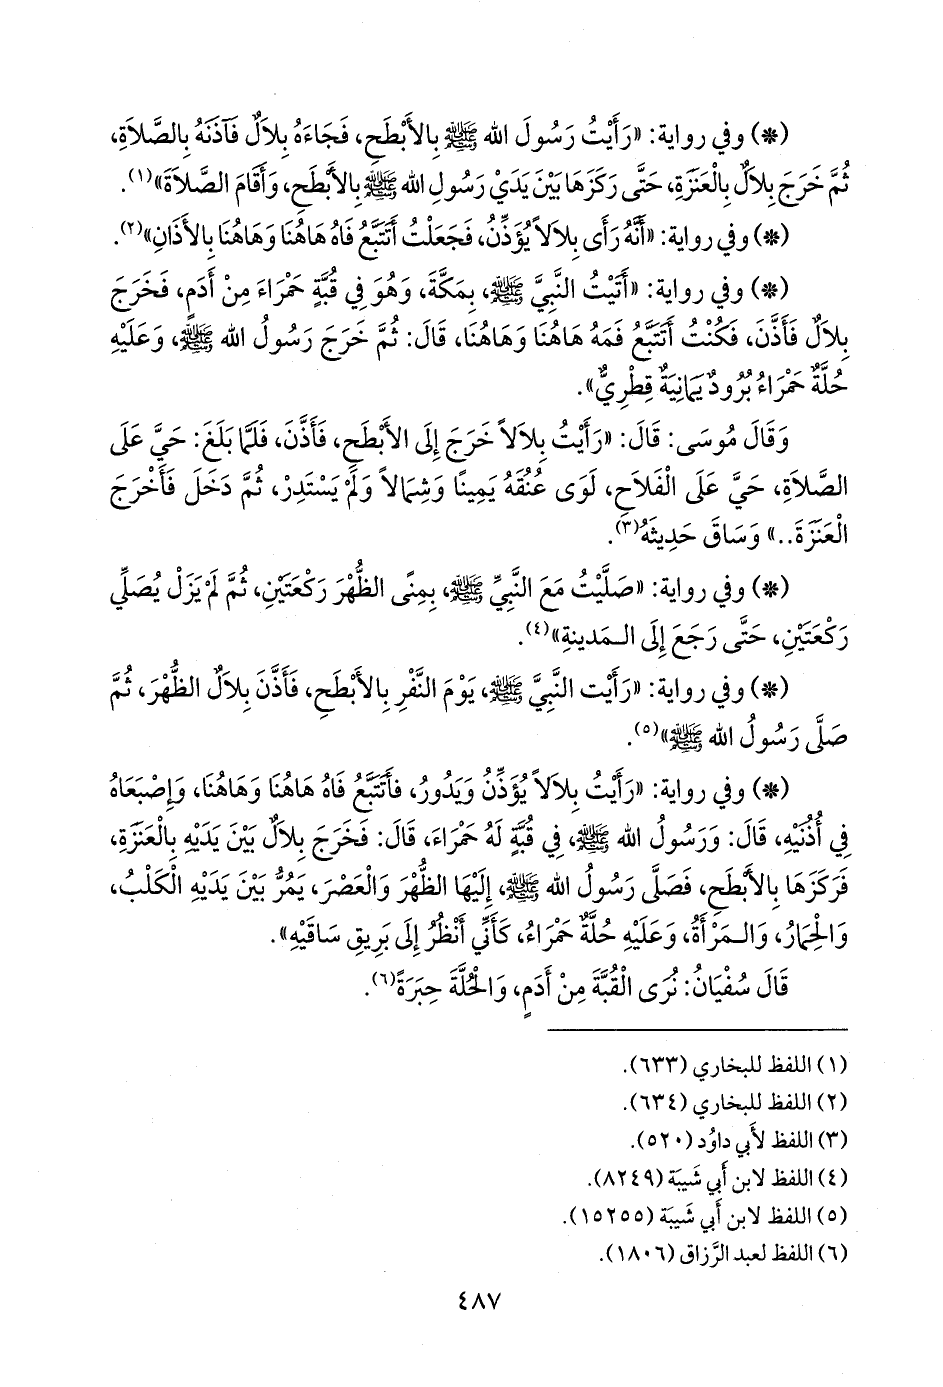 (*) وفي رواية: «رَأَيْتُ رَسُولَ الله ﷺ بِالأَبْطَحِ، فَجَاءَهُ بِلاَلٌ فَآذَنَهُ بِالصَّلاَةِ،
ثُمَّ خَرَجَ بِلاَلٌ بِالْعَنَزَةِ، حَتَّى رَكَزَهَا بَيْنَ يَدَيْ رَسُولِ الله ﷺ بِالأَبْطَحِ، وَأَقَامَ الصَّلاَةَ»(١).
(*) وفي رواية: «أَنَّهُ رَأَى بِلاَلاً يُؤَذِّنُ، فَجَعَلْتُ أَتَتَبَّعُ فَاهُ هَاهُنَا وَهَاهُنَا بِالأَذَانِ»(٢).
(*) وفي رواية: «أَتَيْتُ النَّبِيَّ ﷺ، بِمَكَّةَ، وَهُوَ فِي قُبَّةٍ حَمْرَاءَ مِنْ أَدَمٍ، فَخَرَجَ
بِلاَلٌ فَأَذَّنَ، فَكُنْتُ أَتَتَبَّعُ فَمَهُ هَاهُنَا وَهَاهُنَا، قَالَ: ثُمَّ خَرَجَ رَسُولُ الله ﷺ، وَعَلَيْهِ
حُلَّةٌ حَمْرَاءُ بُرُودٌ يَمَانِيَةٌ قِطْرِيٌّ».
وَقَالَ مُوسَى: قَالَ: «رَأَيْتُ بِلاَلاً خَرَجَ إِلَى الأَبْطَحِ، فَأَذَّنَ، فَلَمَّا بَلَغَ: حَيَّ عَلَى
الصَّلاَةِ، حَيَّ عَلَى الْفَلاَحِ، لَوَى عُنُقَهُ يَمِينًا وَشِمَالاً وَلَمْ يَسْتَدِرْ، ثُمَّ دَخَلَ فَأَخْرَجَ
الْعَنَزَةَ..» وَسَاقَ حَدِيثَهُ(٣).
(*) وفي رواية: «صَلَّيْتُ مَعَ النَّبِيِّ ﷺ، بِمِنًى الظُّهْرَ رَكْعَتَيْنِ، ثُمَّ لَمْ يَزَلْ يُصَلِّي
رَكْعَتَيْنِ، حَتَّى رَجَعَ إِلَى الـمَدينةِ»(٤).
(*) وفي رواية: «رَأَيْت النَّبِيَّ ﷺ، يَوْمَ النَّفْرِ بِالأَبْطَحِ، فَأَذَّنَ بِلاَلٌ الظُّهْرَ، ثُمَّ
صَلَّى رَسُولُ الله ﷺ»(٥).
(*) وفي رواية: «رَأَيْتُ بِلاَلاً يُؤَذِّنُ وَيَدُورُ، فأَتَتَبَّعُ فَاهُ هَاهُنَا وَهَاهُنَا، وَإِصْبَعَاهُ
فِي أُذُنَيْهِ، قَالَ: وَرَسُولُ الله ﷺ، فِي قُبَّةٍ لَهُ حَمْرَاءَ، قَالَ: فَخَرَجَ بِلاَلٌ بَيْنَ يَدَيْهِ بِالْعَنَزَةِ،
فَرَكَزَهَا بِالأَبْطَحِ، فَصَلَّى رَسُولُ الله ﷺ، إِلَيْهَا الظُّهْرَ وَالْعَصْرَ، يَمُرُّ بَيْنَ يَدَيْهِ الْكَلْبُ،
وَالْحِمَارُ، وَالـمَرْأَةُ، وَعَلَيْهِ حُلَّةٌ حَمْرَاءُ، كَأَنِّي أَنْظُرُ إِلَى بَرِيقِ سَاقَيْهِ».
قَالَ سُفْيَانُ: نُرَى الْقُبَّةَ مِنْ أَدَمٍ، وَالْحُلَّةَ حِبَرَةً(٦).
(١) اللفظ للبخاري (٦٣٣).
(٢) اللفظ للبخاري (٦٣٤).
(٣) اللفظ لأَبي داوُد (٥٢٠).
(٤) اللفظ لابن أَبي شَيبَة (٨٢٤٩).
(٥) اللفظ لابن أَبي شَيبَة (١٥٢٥٥).
(٦) اللفظ لعبد الرَّزاق (١٨٠٦).
٤٨٧